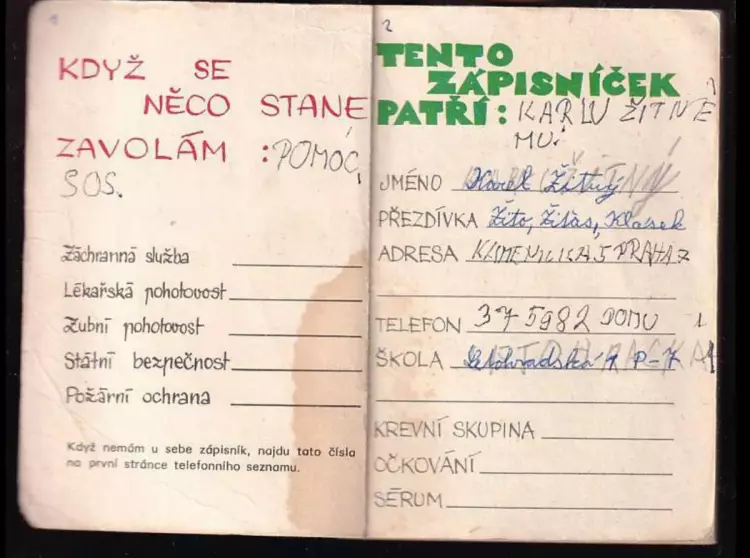 1
KDYŽ SE
NĚCO STANE
ZAVOLÁM : POMOC,
SOS.
Záchranná služba
Lékařská pohotovost
Zubní pohotovost
Státní bezpečnost
Požární ochrana
Když nemám u sebe zápisník, najdu tato čísla
na první stránce telefonního seznamu.
2
TENTO
ZÁPISNÍČEK
PATŘÍ: KARLU ŽITNÉ
MU.
JMÉNO Karel Žitný
PŘEZDÍVKA Žito, Žiťas, Klasek
ADRESA KAMENICKÁ 5 PRAHA 7
TELEFON 37 5982 DOMU
ŠKOLA Letohradská 1 P-7
KREVNÍ SKUPINA
OČKOVÁNÍ
SÉRUM